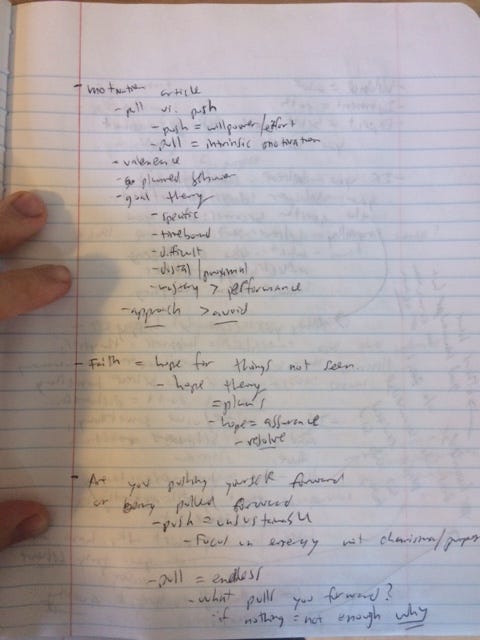 - motivation article
- pull vs. push
- push = willpower/effort
- pull = intrinsic motivation
- valence
- planned behavior
- goal theory
- specific
- timebound
- difficult
- distal/proximal
- mastery > performance
- approach > avoid
- Faith = hope for things not seen
- hope theory
= plans
- hope = assurance
- resolve
- Are you pushing yourself forward
or being pulled forward
- push = unsustainable
- Focus on energy not charisma/purpose
- pull = endless
- what pulls you forward?
if nothing = not enough why